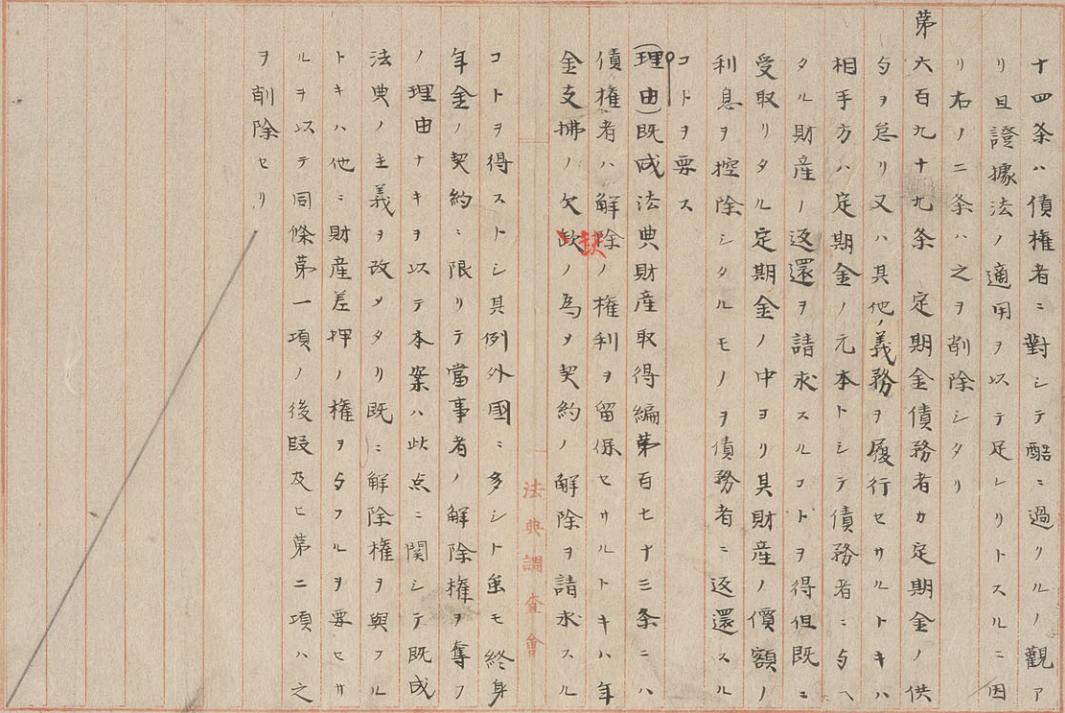 十四条ハ債権者ニ對シテ酷ニ過クルノ觀ア
リ且證據法ノ適用ヲ以テ足レリトスルニ因
リ右ノ二条ハ之ヲ削除シタリ
第六百九十九条 定期金債務者カ定期金ノ供
与ヲ怠リ又ハ其他ノ義務ヲ履行セサルトキハ
相手方ハ定期金ノ元本トシテ債務者ニ与ヘ
タル財産ノ返還ヲ請求スルコトヲ得但既ニ
受取リタル定期金ノ中ヨリ其財産ノ價額ノ
利息ヲ控除シタルモノヲ債務者ニ返還スル
コトヲ要ス
(理由)既成法典財産取得編第百七十三条ニハ
債権者ハ解除ノ権利ヲ留保セサルトキハ年
金支拂ノ欠缺ノ為メ契約ノ解除ヲ請求スル
法典調査會
コトヲ得ストシ其例外國ニ多シト虽モ終身
年金ノ契約ニ限リテ當事者ノ解除権ヲ奪フ
ノ理由ナキヲ以テ本案ハ此点ニ関シテ既成
法典ノ主義ヲ改メタリ既ニ解除権ヲ與フル
トキハ他ニ財産差押ノ権ヲ与フルヲ要セサ
ルヲ以テ同條第一項ノ後段及ヒ第二項ハ之
ヲ削除セリ